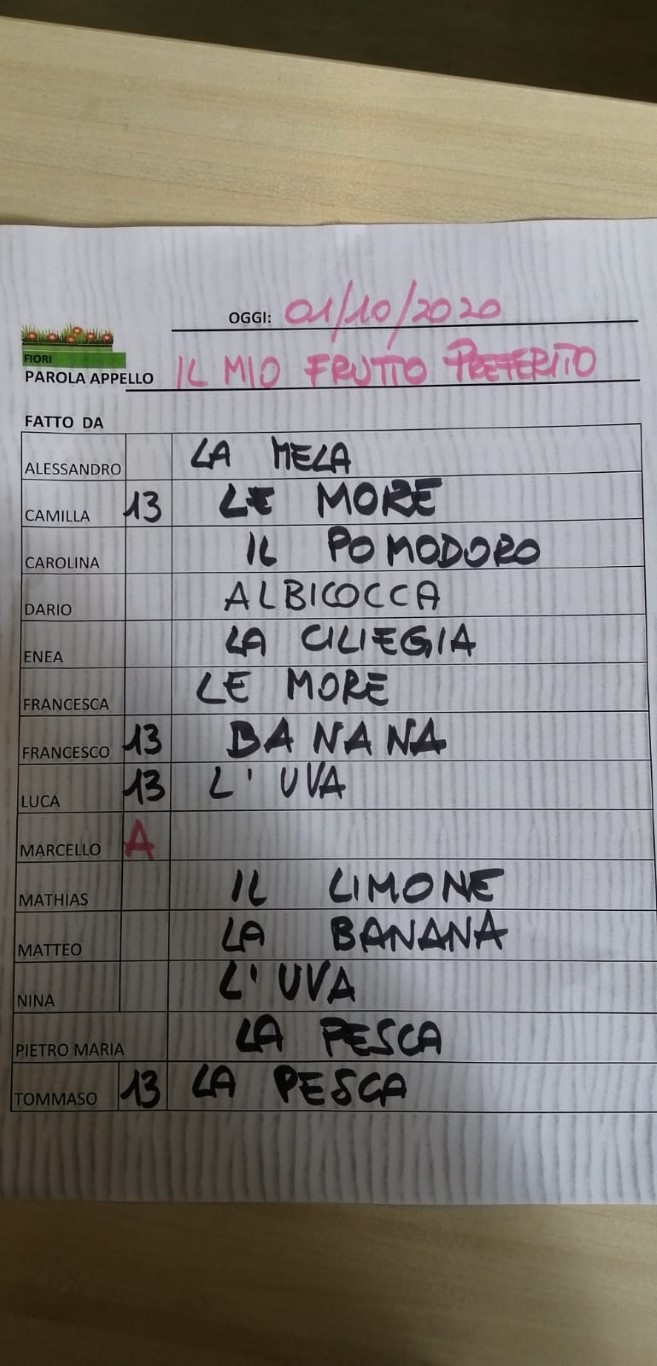 OGGI: 01/10/2020
FIORI
PAROLA APPELLO IL MIO FRUTTO PREFERITO
FATTO DA
ALESSANDRO LA MELA
CAMILLA 13 LE MORE
CAROLINA IL POMODORO
DARIO ALBICOCCA
ENEA LA CILIEGIA
FRANCESCA LE MORE
FRANCESCO 13 BANANA
LUCA 13 L'UVA
MARCELLO A
MATHIAS IL LIMONE
MATTEO LA BANANA
NINA L'UVA
PIETRO MARIA LA PESCA
TOMMASO 13 LA PESCA